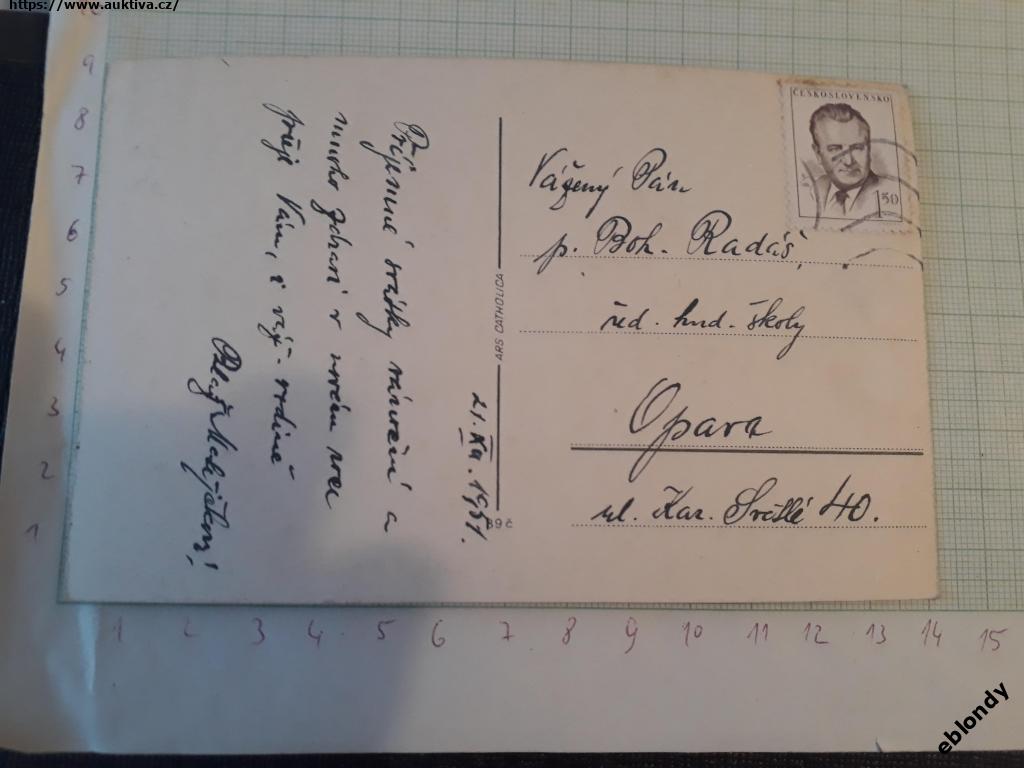 https://www.auktiva.cz/
9
8
7
6
5
4
3
2
1
Příjemné svátky vánoční a
mnoho zdraví v novém roce
přeje Vám, i vší rodině
21. XII. 1951.
ARS CATHOLICA
89 č
ČESKOSLOVENSKO
1 50
Vážený Pán
p. Boh. Radáš,
řed. hud. školy
Opava
ul. Kar. Světlé 40.
1 2 3 4 5 6 7 8 9 10 11 12 13 14 15
eblondy